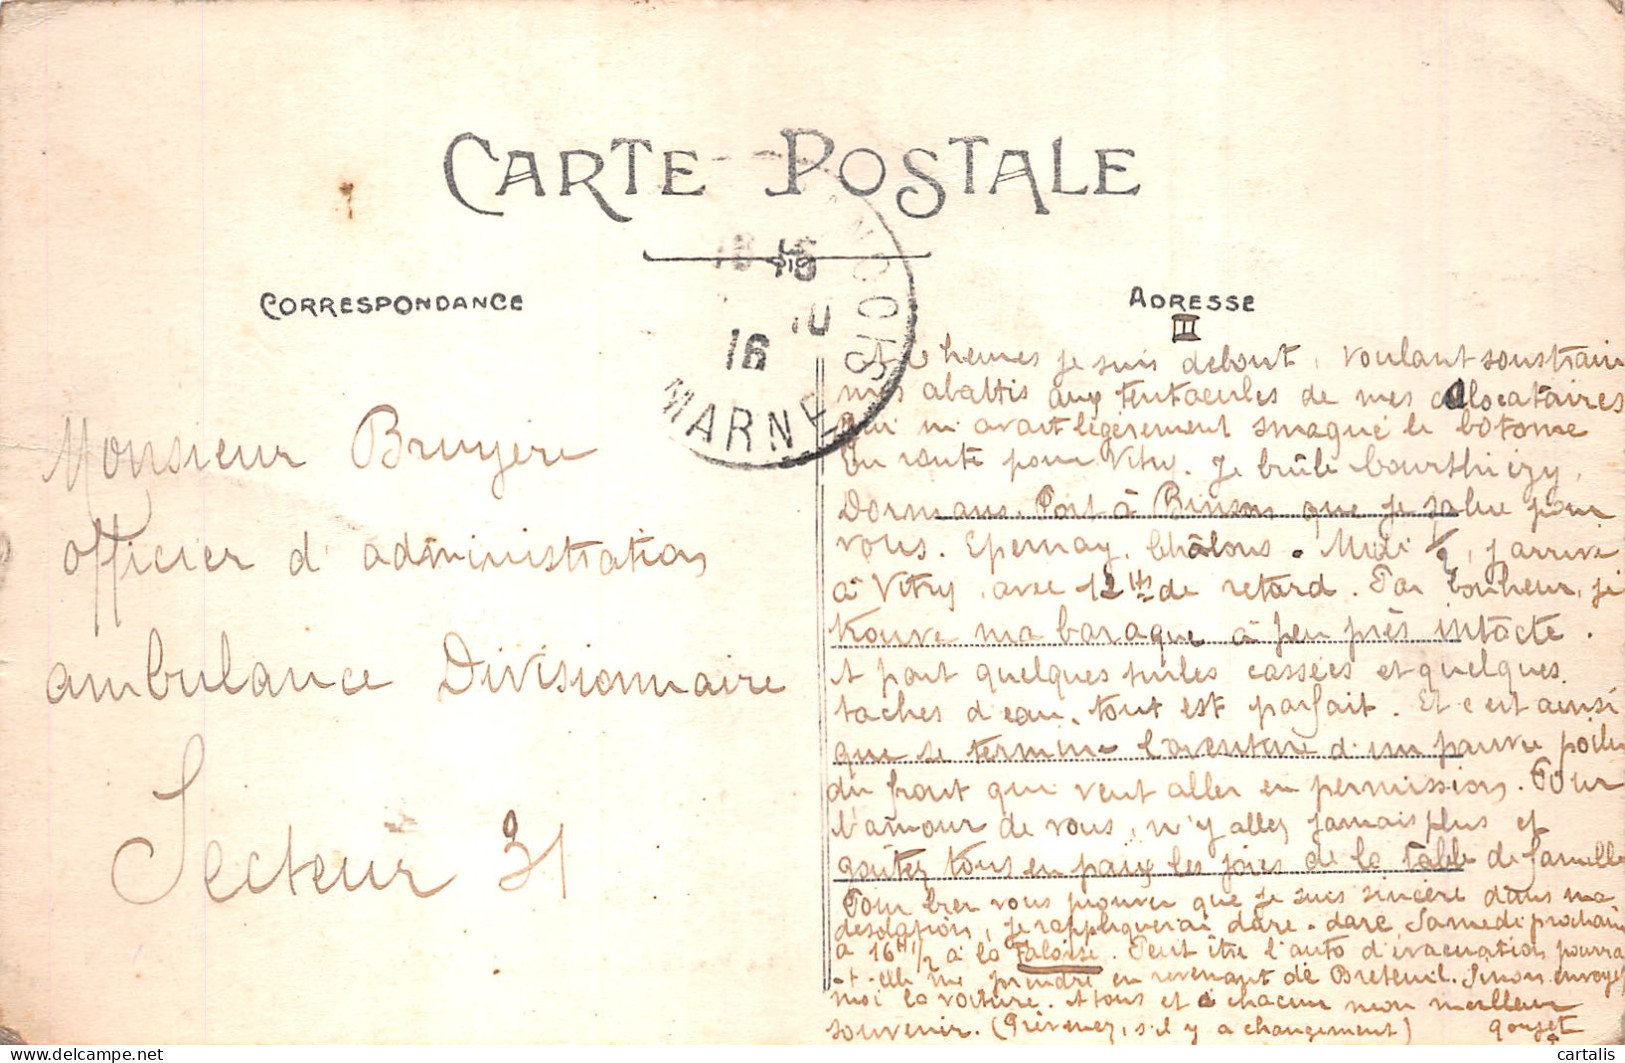 CARTE POSTALE
CORRESPONDANCE
ADRESSE
III
16 10
16
FRANÇOIS
MARNE
Monsieur Bruyère
officier d'administration
ambulance Divisionnaire
Secteur 31
heures je suis debout, voulant soustraire
mes abattis aux tentacules de mes colocataires
qui m'avait légèrement smaqué le
En route pour Vitry. Je brûle
Dormans. Port à Binson que je salue pour
vous. Epernay, Châlons. Midi 1/2, j'arrive
à Vitry, avec 12 hs de retard. Par bonheur, je
trouve ma baraque à peu près intacte.
A part quelques tuiles cassées et quelques
taches d'eau, tout est parfait. Et c'est ainsi
que se termine l'aventure d'un pauvre poilu
du front qui veut aller en permission. Pour
l'amour de vous, n'y allez jamais plus et
goûtez tous en paix les joies de la table de famille
Pour bien vous prouver que je suis sincère dans ma
désolation, je rappliquerai dare-dare Samedi prochain
à 16 h 1/2 à la Falouse. Peut être l'auto d'évacuation pourra
-t-elle me prendre en revenant de Breteuil. Sinon envoyez
moi la voiture. A tous et à chacun mon meilleur
souvenir. (Prévenez, s'il y a changement) Gouget
cartalis